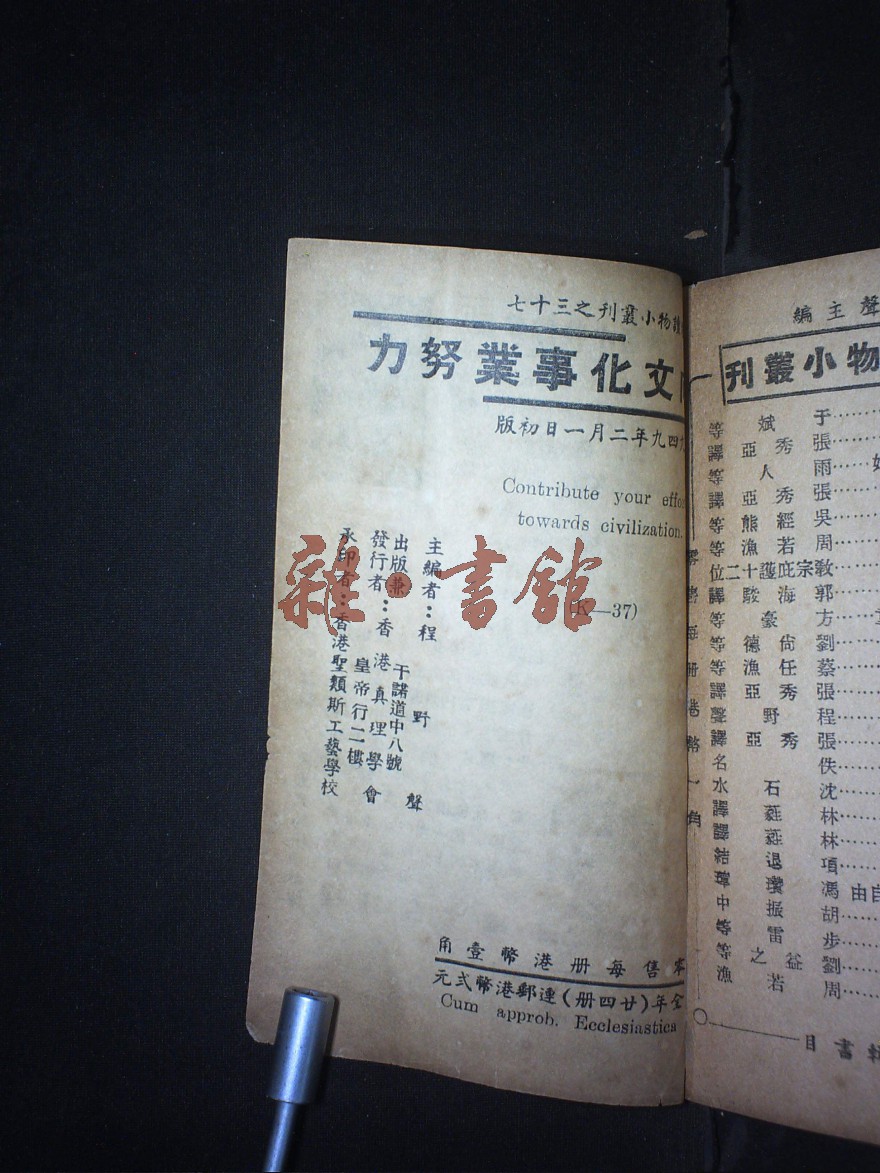 物小叢刊之三十七
文化事業努力
四九年二月一日初版
Contribute your
towards civilization.
(K—37)
主編者：程野聲
出版兼
發行者：香港真理學會
干諾道中八號
皇帝行二樓
承印者：香港聖類斯工藝學校
零售每册港幣壹角
全年（廿四册）連郵港幣弍元
Cum approb. Ecclesiastica
雜·書館
聲主編
物小叢刊
于斌等
張秀亞譯
雨人等
張秀亞譯
吳經熊等
周若漁等
教宗庇護十二位
郭海駿譯
方豪等
劉尙德等
蔡任漁等
張秀亞譯
程野聲
張秀亞譯
佚名
沈石水
林蕤譯
林蕤譯
項退結
馮瓚璋
由自
胡振中
步雷等
劉益之等
周若漁
每册港幣一角
輯書目